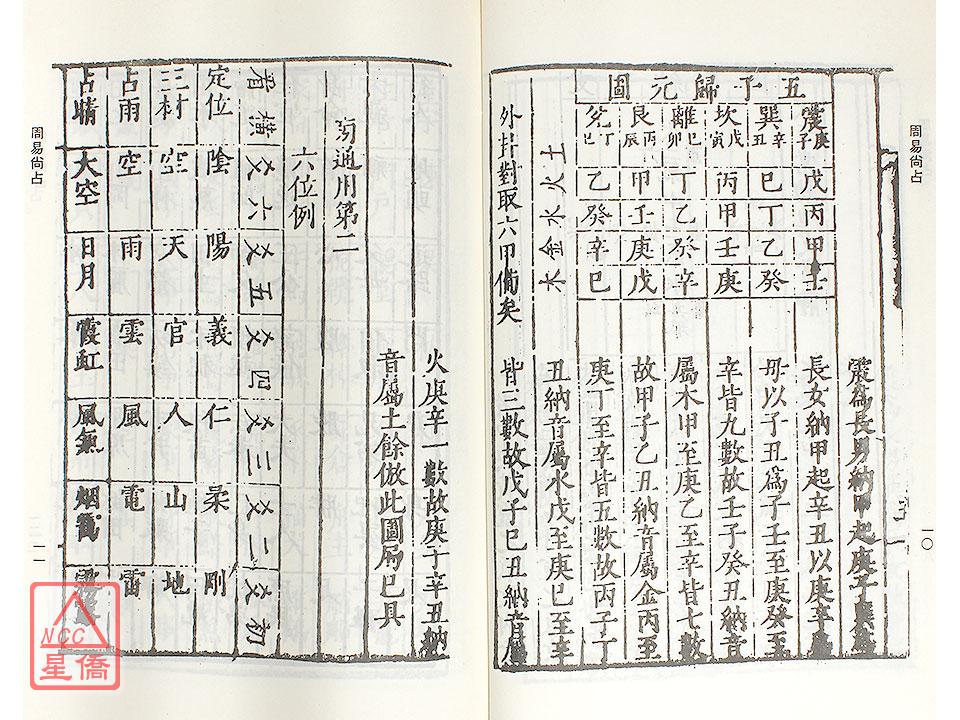 周易尚占
五子歸元圖
震 庚子 戊 丙 甲 壬
巽 辛丑 巳 丁 乙 癸
坎 戊寅 丙 甲 壬 庚
離 巳卯 丁 乙 癸 辛
艮 丙辰 甲 壬 庚 戊
兌 丁巳 乙 癸 辛 巳
土 火 水 金 木
外卦對取六甲備矣
震為長男納甲起庚子
長女納甲起辛丑以庚辛為
母以子丑為子壬至庚癸至
辛皆九數故壬子癸丑納音
屬木甲至庚乙至辛皆七數
故甲子乙丑納音屬金丙至
庚丁至辛皆五數故丙子丁
丑納音屬水戊至庚巳至辛
皆三數故戊子巳丑納音屬
一〇
火庚辛一數故庚子辛丑納
音屬土餘倣此圖局巳具
通用第二
六位例
橫 爻六 爻五 爻四 爻三 爻二 爻初
定位 陰 陽 義 仁 柔 剛
三材 空 天 官 人 山 地
占雨 空 雨 雲 風 電 雷
占晴 大空 日月 霞虹 風氣 烟
周易尚占
一一
NCC
星僑